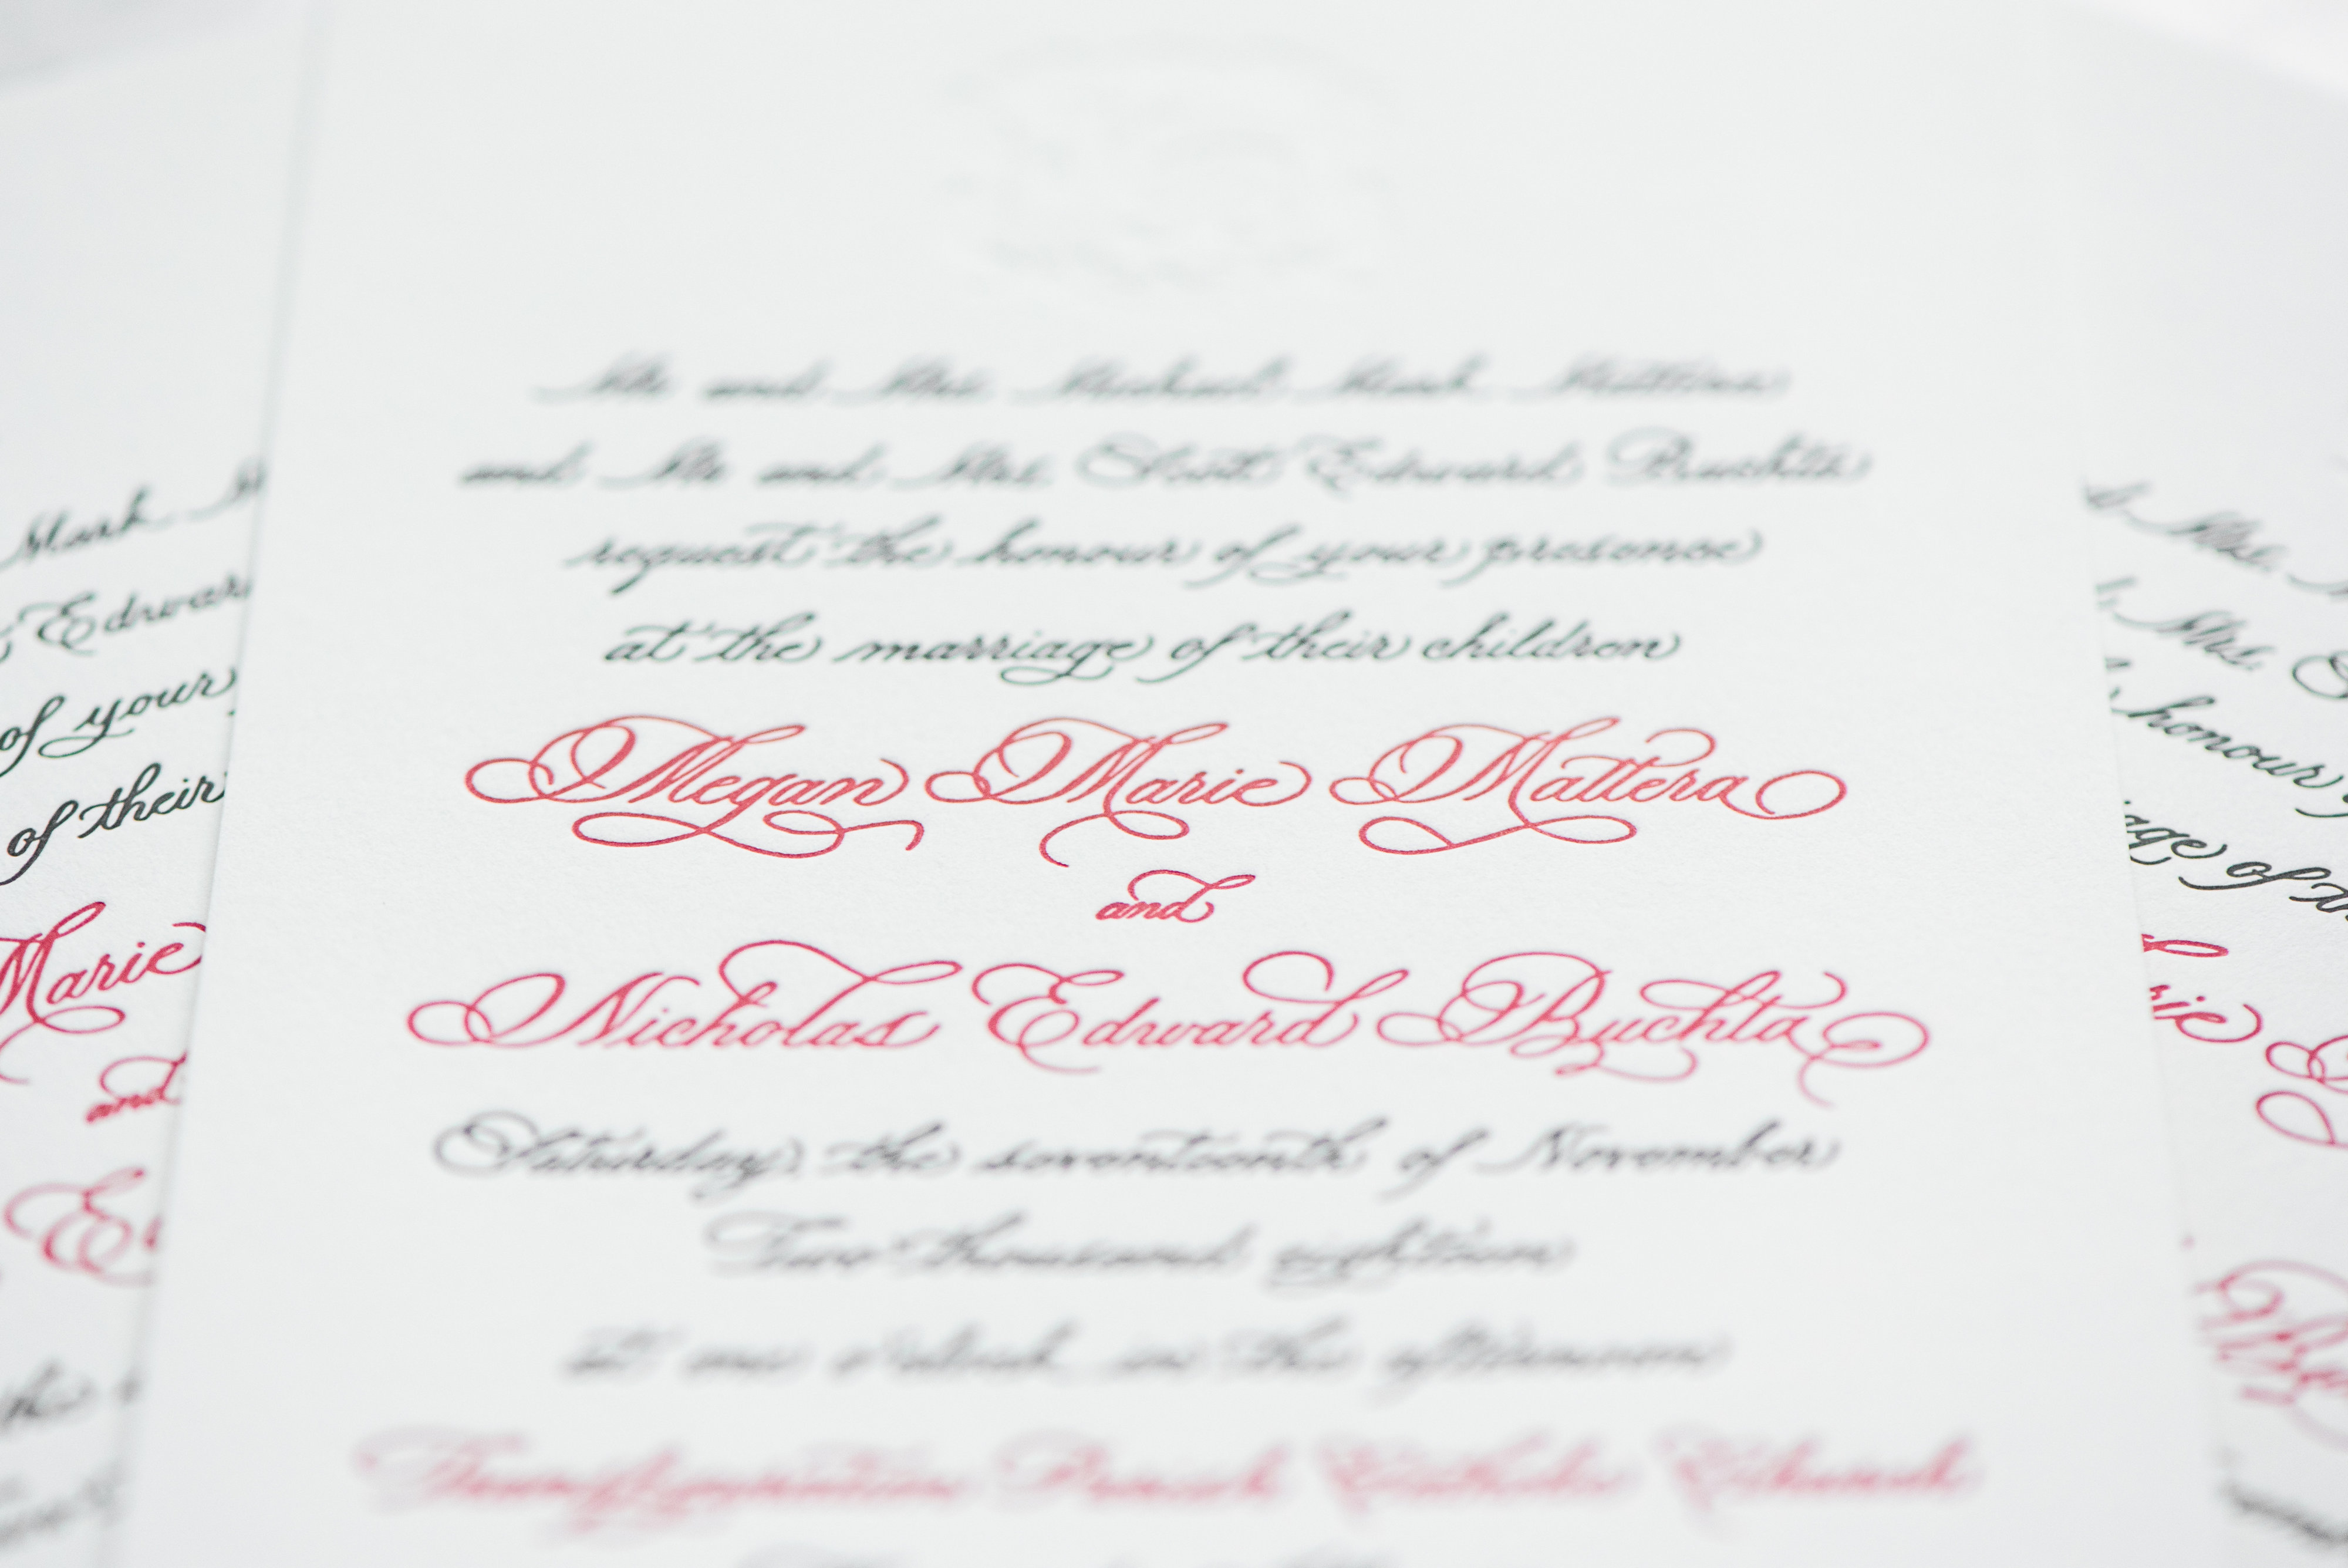 Mr. and Mrs. Michael Mark Mattera
and Mr. and Mrs. Scott Edward Buchta
request the honour of your presence
at the marriage of their children
Megan Marie Mattera
and
Nicholas Edward Buchta
Saturday, the seventeenth of November
Two thousand eighteen
at one o'clock in the afternoon
Transfiguration Parish Catholic Church
Mark
Edwar
of your
of their
Marie
and
E
Mrs.
Mrs.
honour
age of th
rie